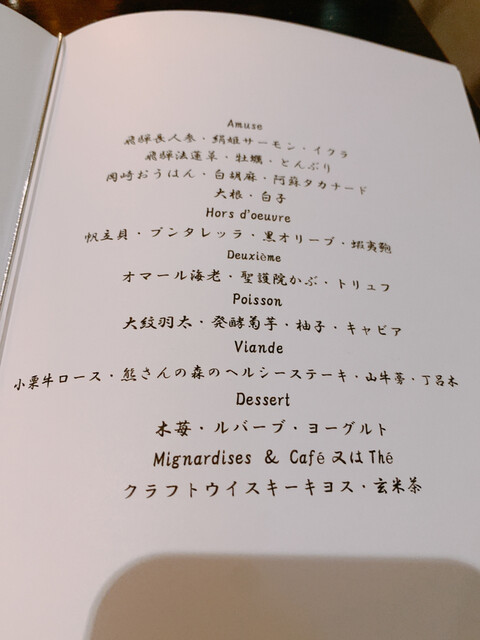 Amuse
飛騨長人参・絹姫サーモン・イクラ
飛騨法蓮草・牡蠣・とんぶり
岡崎おうはん・白胡麻・阿蘇タカナード
大根・白子
Hors d'oeuvre
帆立貝・プンタレッラ・黒オリーブ・蝦夷鮑
Deuxième
オマール海老・聖護院かぶ・トリュフ
Poisson
大紋羽太・発酵菊芋・柚子・キャビア
Viande
小栗牛ロース・熊さんの森のヘルシーステーキ・山牛蒡・丁呂木
Dessert
木苺・ルバーブ・ヨーグルト
Mignardises & Café 又は Thé
クラフトウイスキーキヨス・玄米茶